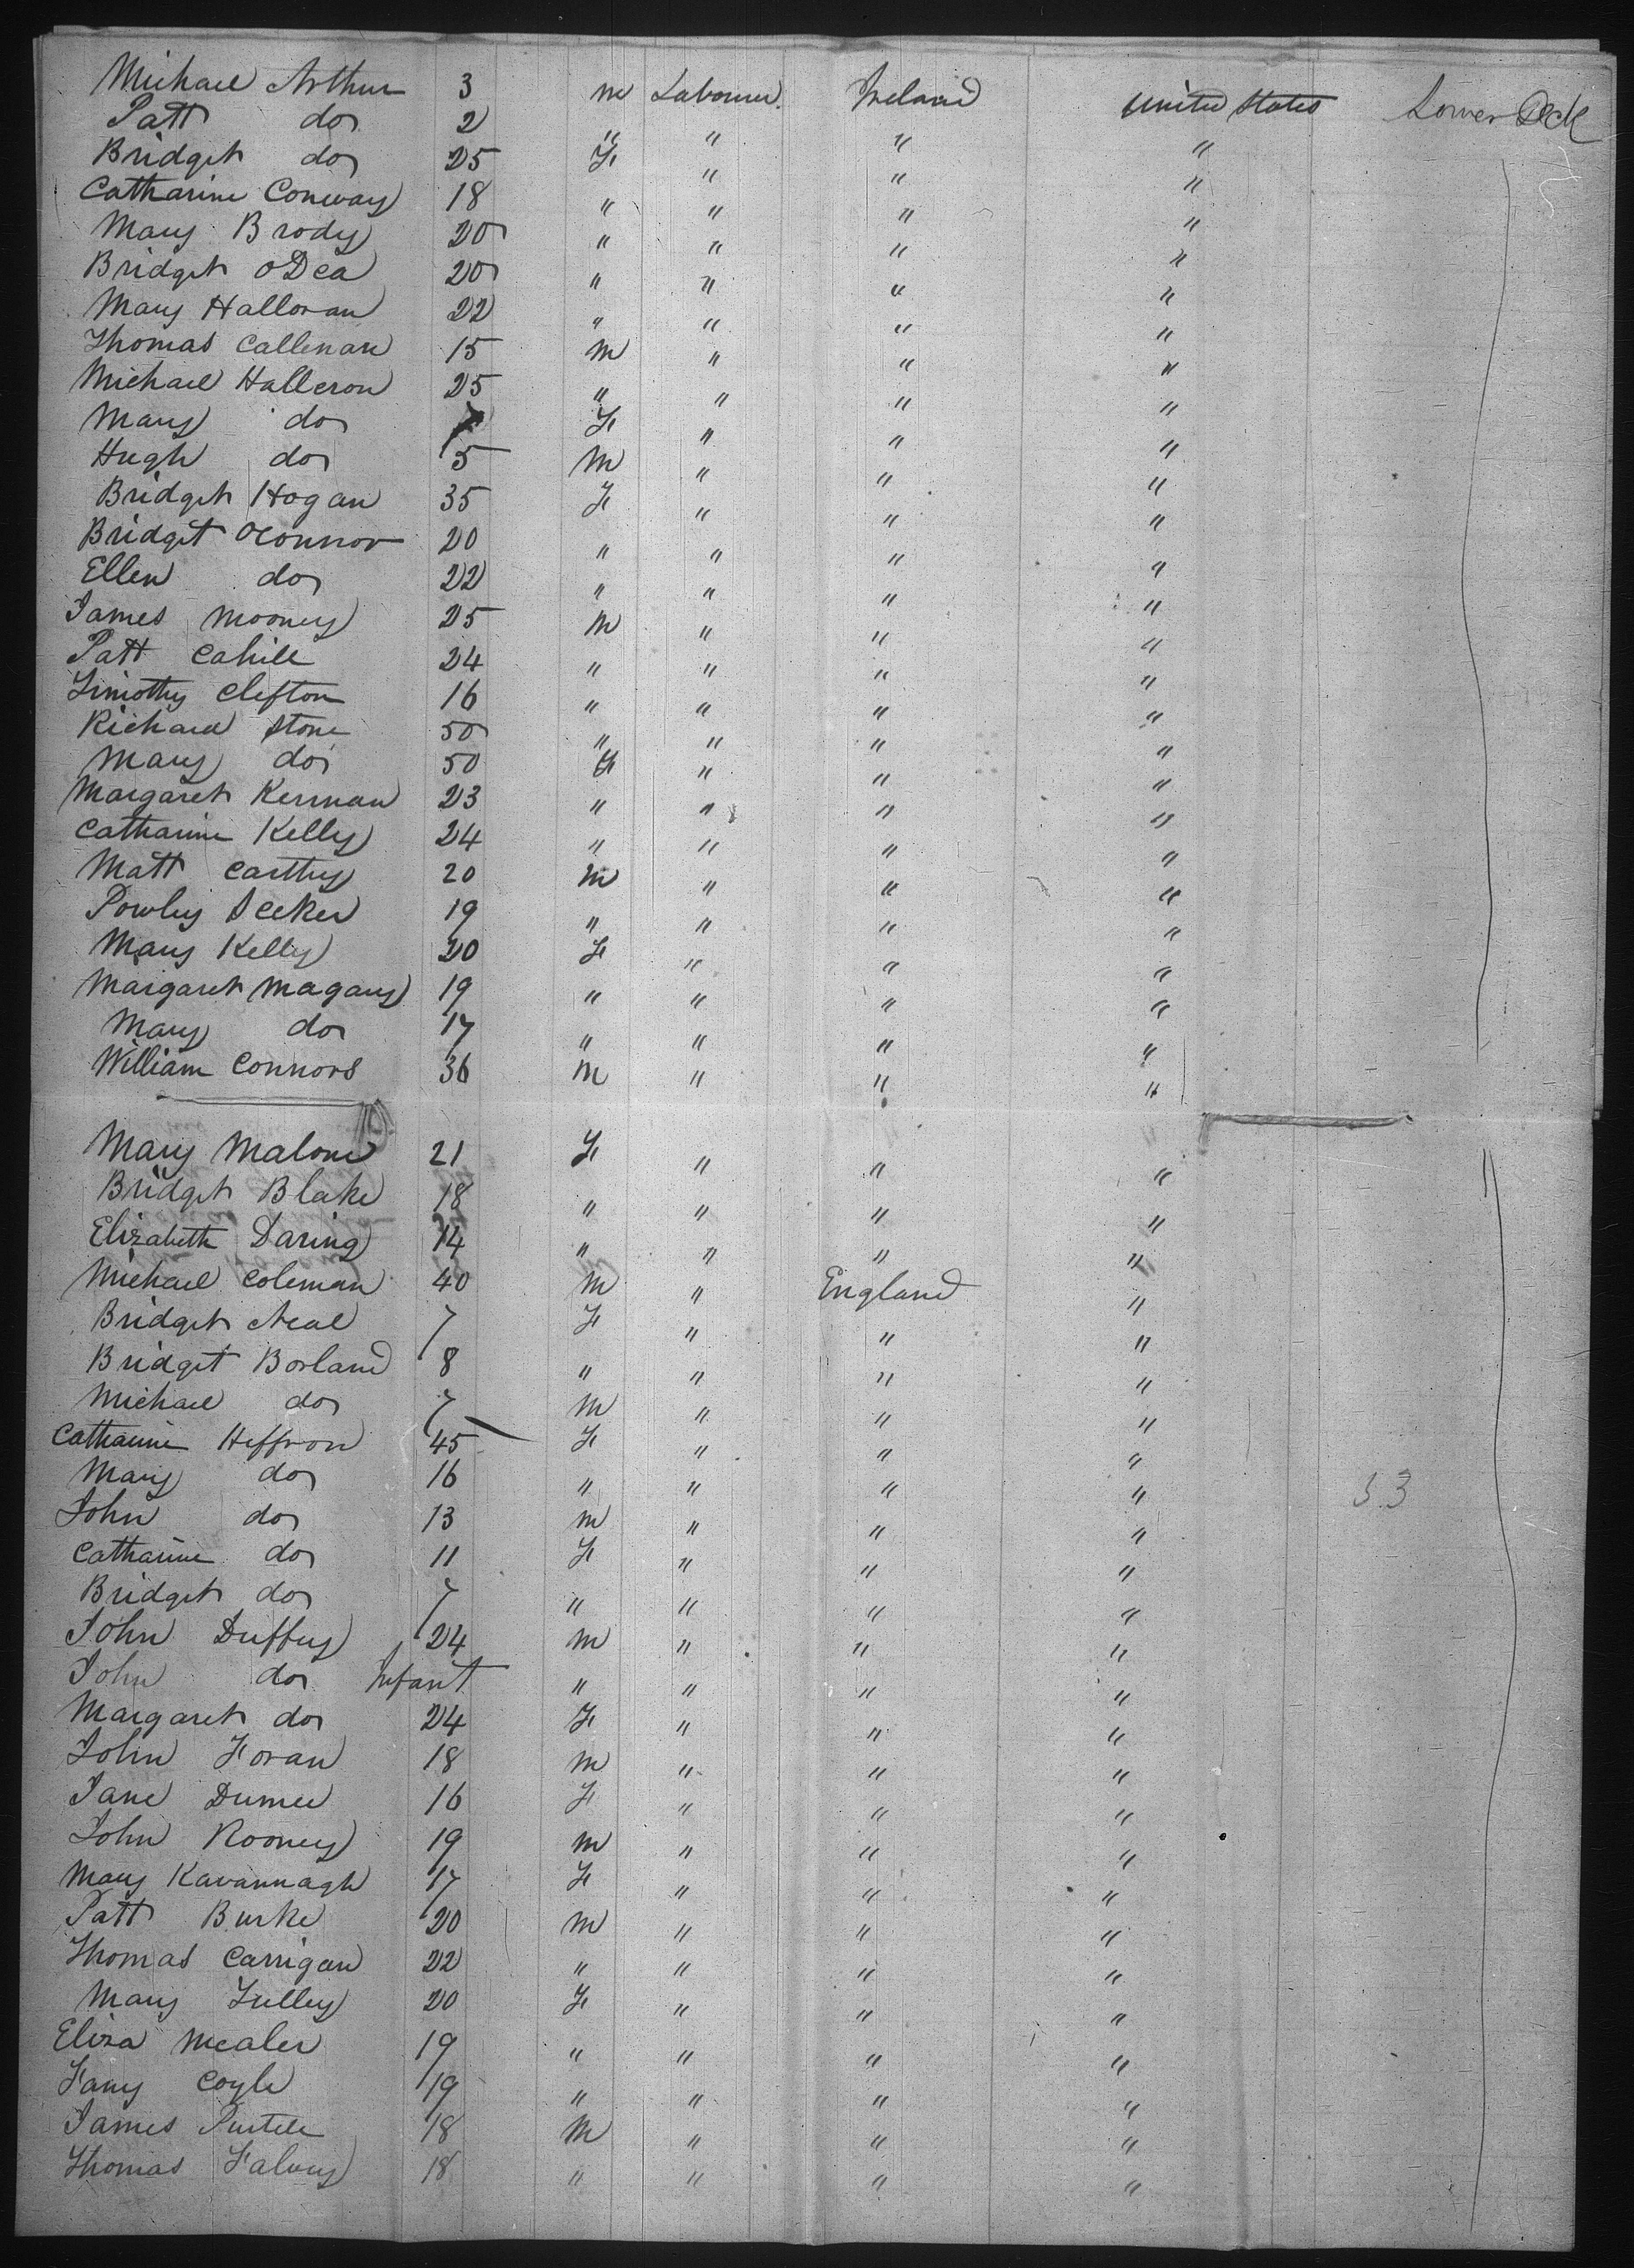 Michael Arthur 3 m Labourer Ireland United States Lower Deck
Patt do 2 " " " "
Bridget do 25 F " " "
Catharine Conway 18 " " " "
Mary Brody 20 " " " "
Bridget oDea 20 " " " "
Mary Halloran 22 " " " "
Thomas Callenan 15 m " " "
Michael Halleron 25 " " " "
Mary do 7 F " " "
Hugh do 5 m " " "
Bridget Hogan 35 F " " "
Bridget oConnor 20 " " " "
Ellen do 22 " " " "
James Mooney 25 m " " "
Patt Cahill 24 " " " "
Timothy Clifton 16 " " " "
Richard Stone 50 " " " "
Mary do 50 F " " "
Margaret Kernan 23 " " " "
Catharine Kelly 24 " " " "
Matt Carthy 20 m " " "
19 " " " "
Mary Kelly 20 F " " "
Margaret Magany 19 " " " "
Mary do 17 " " " "
William Connors 36 m " " "
Mary Malone 21 F " " "
Bridget Blake 18 " " " "
Elizabeth Daring 14 " " " "
Michael Coleman 40 m " England "
Bridget Neal 7 F " " "
Bridget Borland 8 " " " "
Michael do 7 m " " "
Catharine Heffron 45 F " " "
Mary do 16 " " " "
33
John do 13 m " " "
Catharine do 11 F " " "
Bridget do 7 " " " "
John Duffy 24 m " " "
John do Infant " " " "
Margaret do 24 F " " "
John Foran 18 m " " "
Jane 16 F " " "
John Rooney 19 m " " "
Mary Kavannagh 17 F " " "
Patt Burke 20 m " " "
Thomas Carrigan 22 " " " "
Mary Tulley 20 F " " "
Eliza Mealer 19 " " " "
Fany Coyle 19 " " " "
James Purtele 18 m " " "
Thomas Falvey 18 " " " "